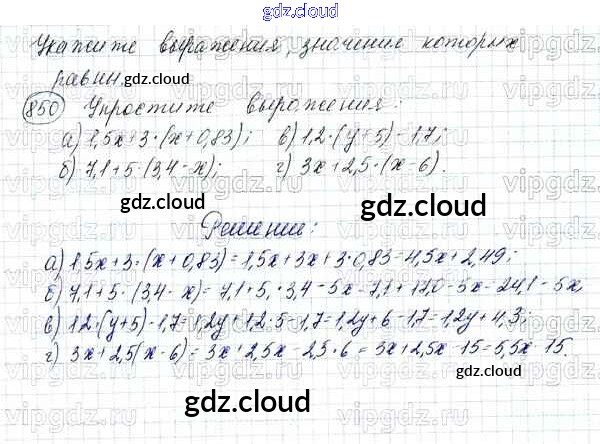 gdz.cloud
Укажите выражения, значение которых
равны gdz.cloud
850 Упростите выражения:
а) 1,5x+3·(x+0,83); в) 1,2·(y+5)-1,7;
б) 7,1+5·(3,4-x); г) 3x+2,5·(x-6).
gdz.cloud gdz.cloud
Решение:
а) 1,5x+3·(x+0,83)=1,5x+3x+3·0,83=4,5x+2,49;
б) 7,1+5·(3,4-x)=7,1+5·3,4-5x=7,1+17,0-5x=24,1-5x,
в) 1,2·(y+5)-1,7=1,2y+1,2·5-1,7=1,2y+6-1,7=1,2y+4,3;
г) 3x+2,5(x-6)=3x+2,5x-2,5·6=3x+2,5x-15=5,5x-15.
gdz.cloud gdz.cloud